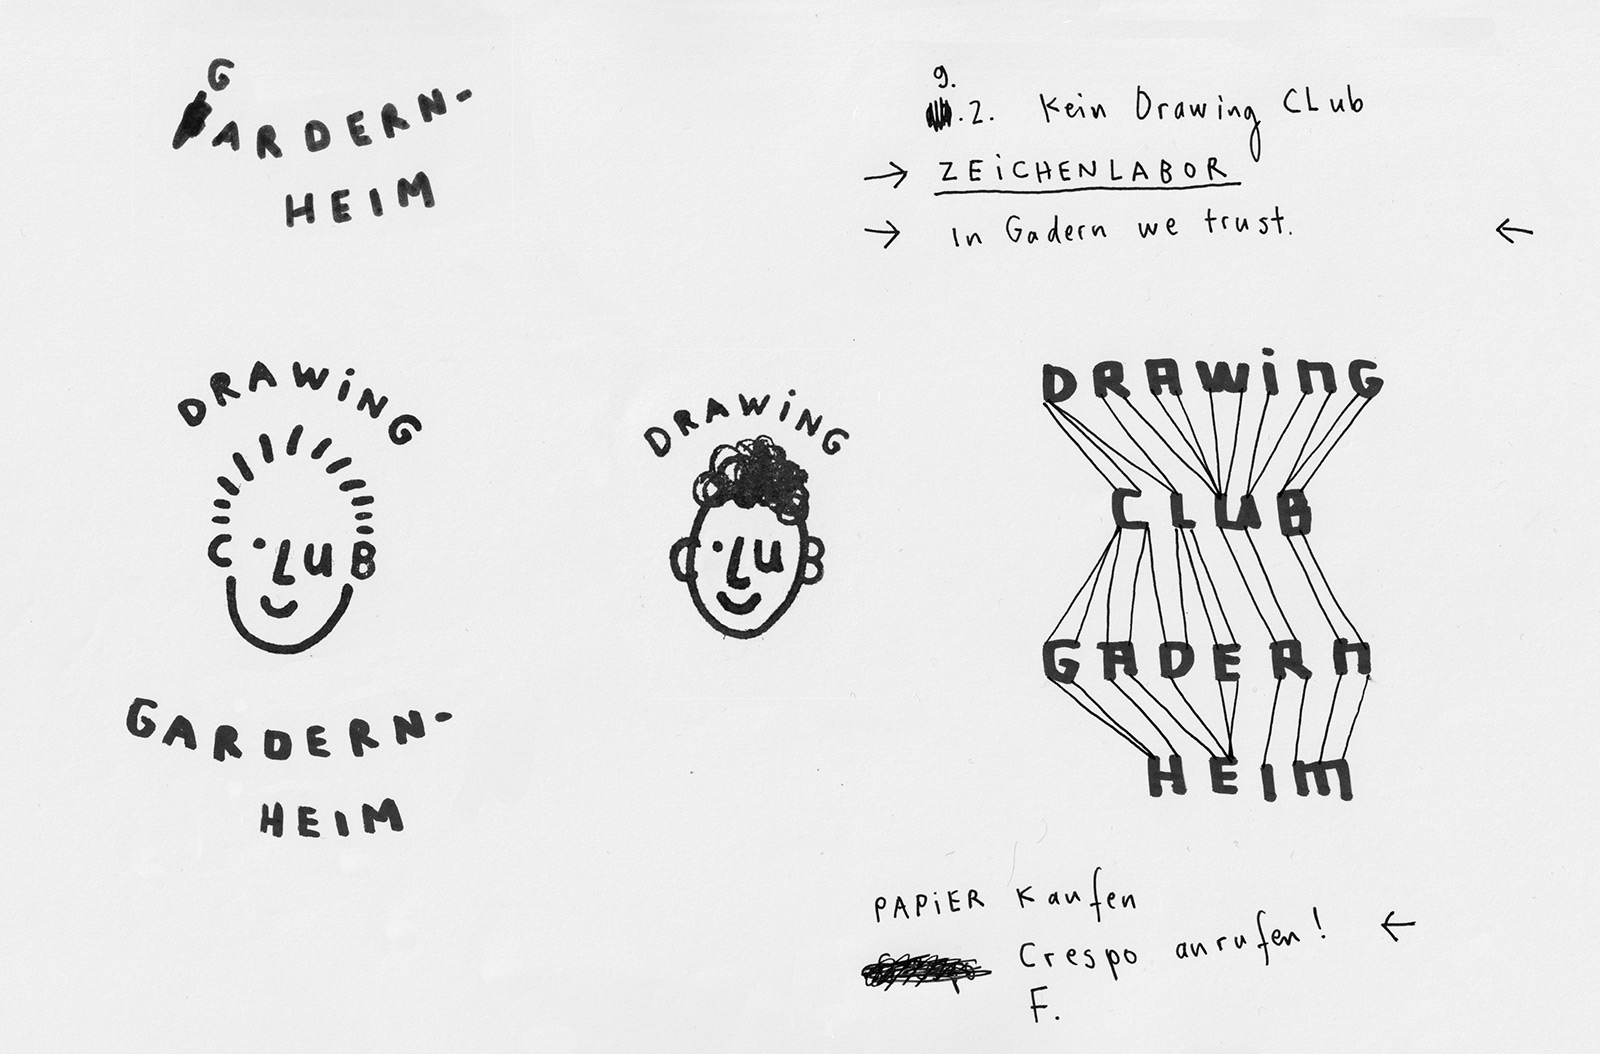 G
ARDERN-
HEIM
9.
.2. Kein Drawing CLub
→ ZEiCHENLABOR
→ In Gadern we trust. ←
DRAWiNG
CLUB
GARDERN-
HEIM
DRAWiNG
CLUB
DRAWiNG
CLUB
GADERN
HEIM
PAPiER Kaufen
Crespo anrufen! ←
F.